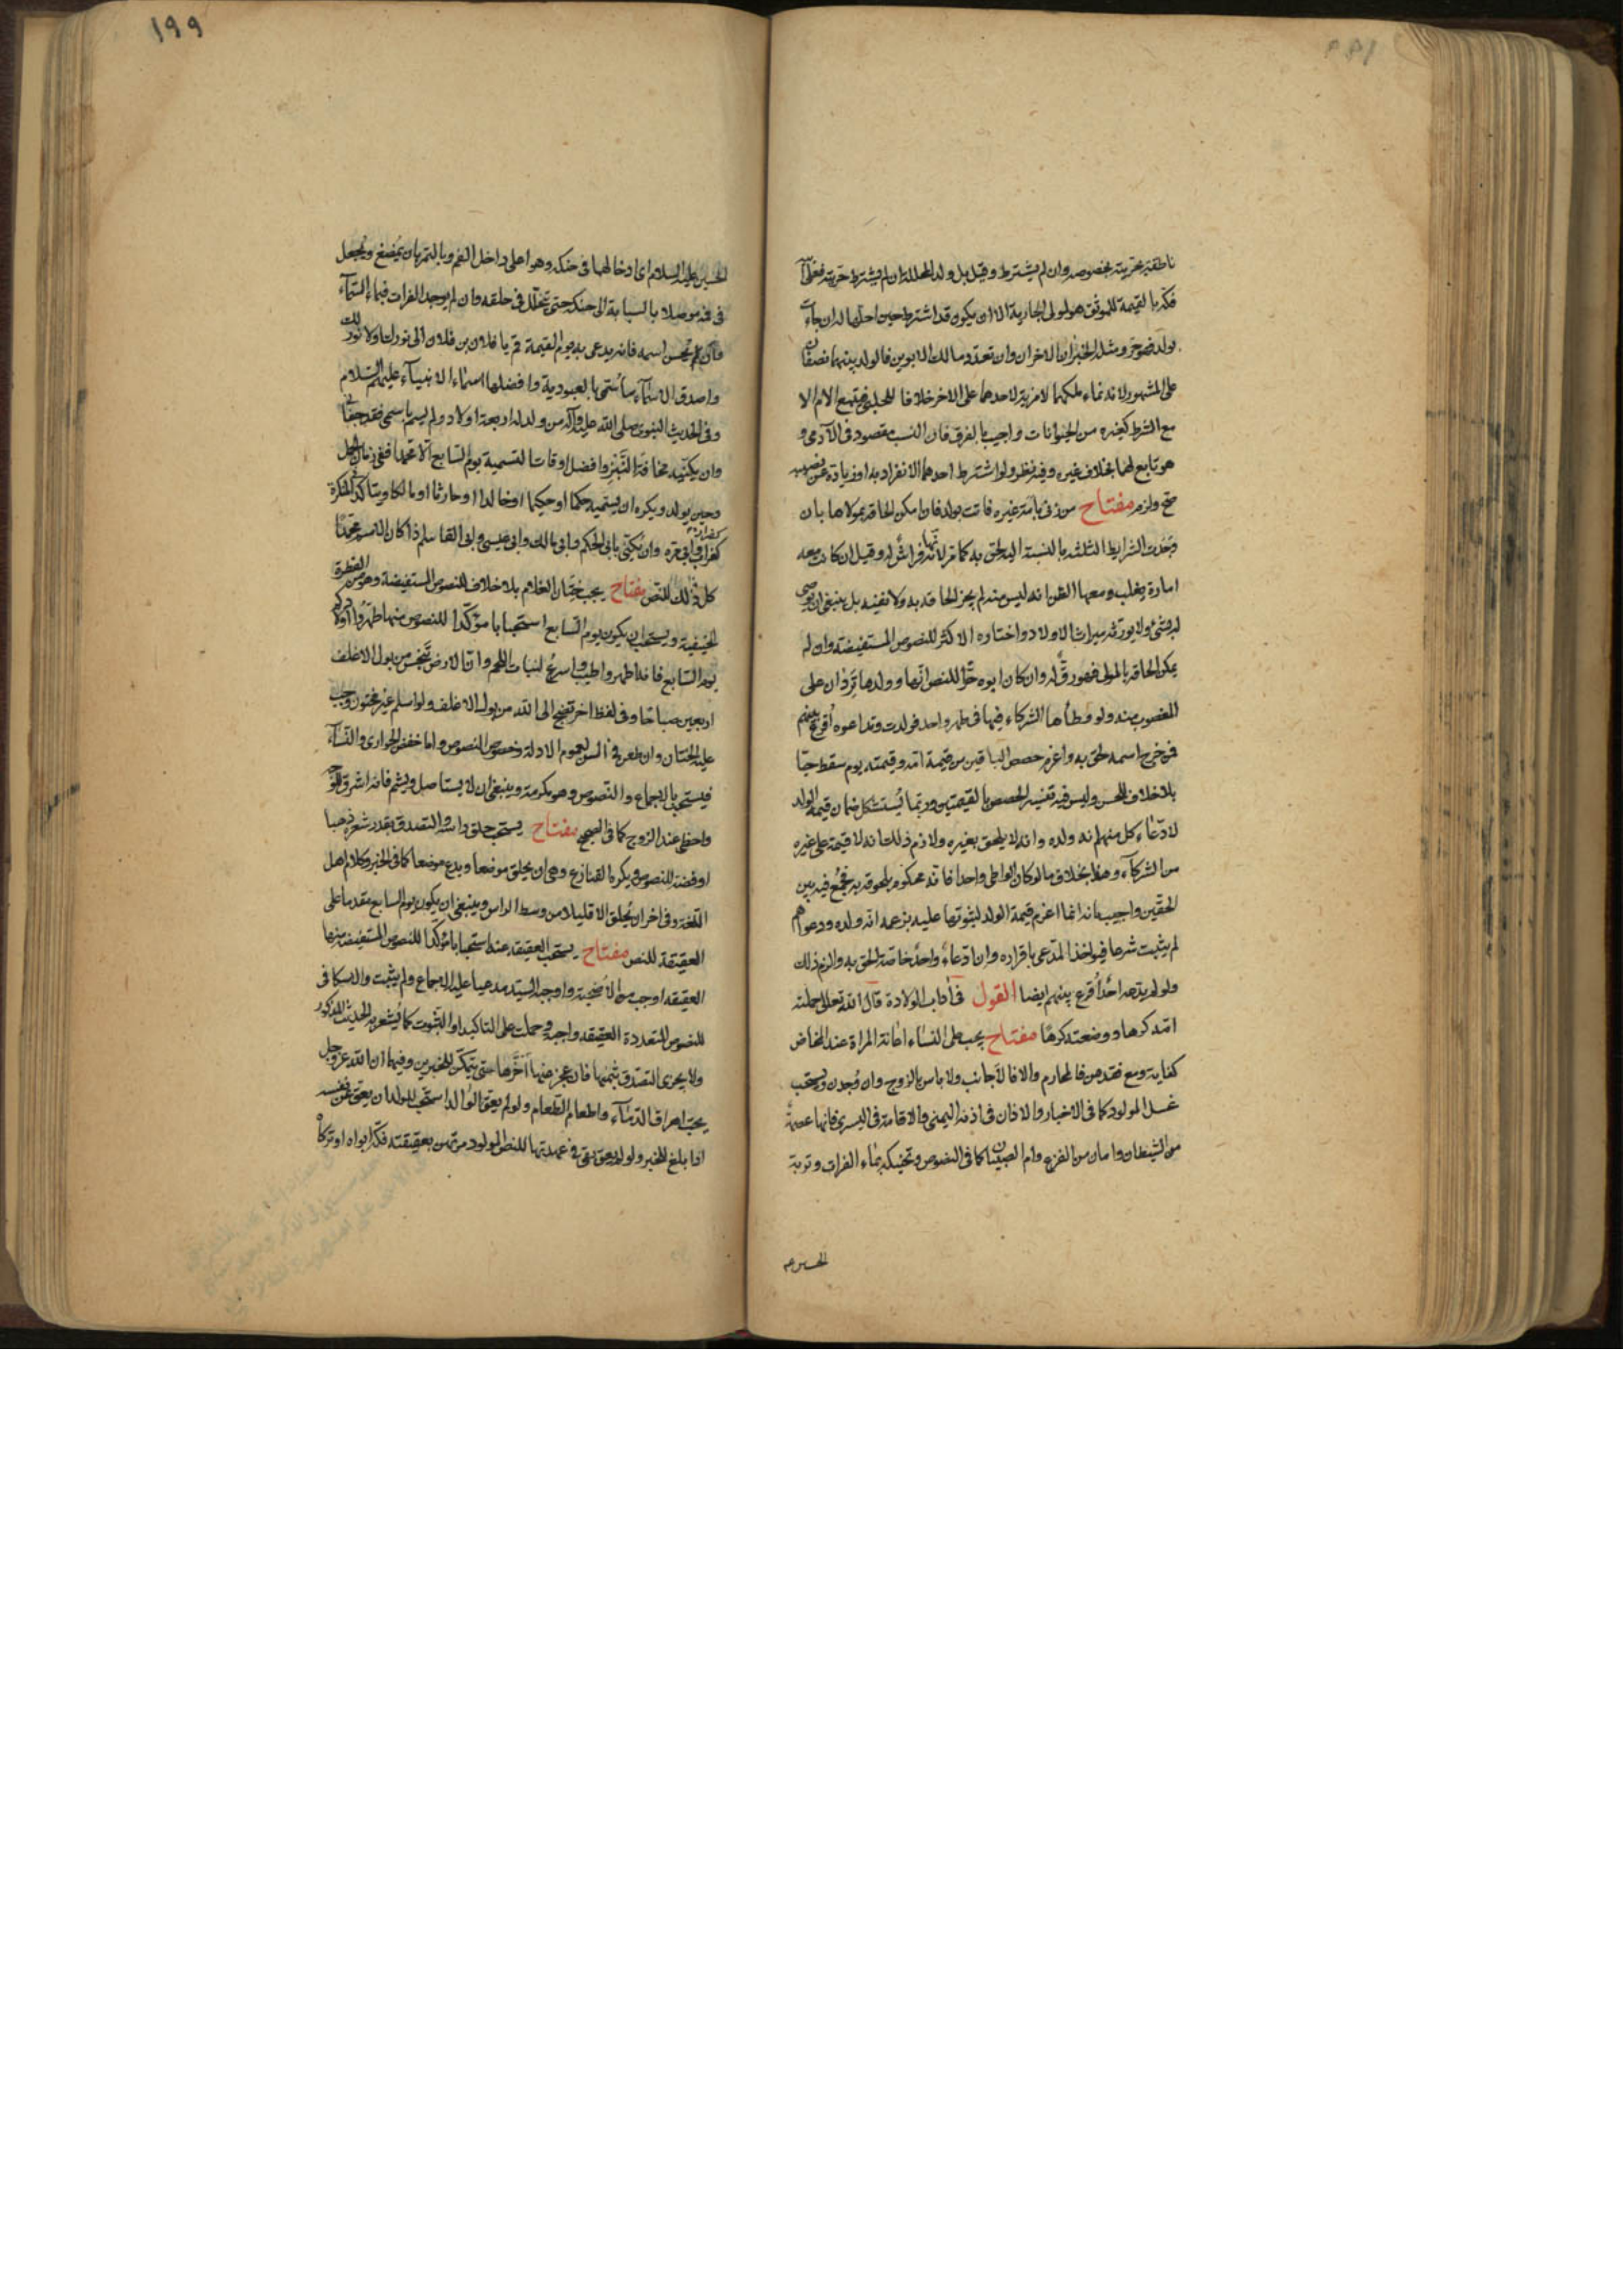 ناطقة بحريته بخصوصه وان لم يشترط وقيل بل ولد المحللة ان لم يشترط حريته فعلى
فكه بالقيمة للموثق هو لمولى الجارية الا ان يكون قد اشترط حين احلها له ان جاءت
بولد فهو حر ومثله الخبران الاخران وان تعدد مالك الابوين فالولد بينهما نصفان
على المشهور لانه نماء ملكهما لا مزية لاحدهما على الاخر خلافا للحلبي فيتبع الام الا
مع الشرط كغيره من الحيوانات واجيب بالفرق فان النسب مقصود في الآدمي و
هو تابع لهما بخلاف غيره وفيه نظر ولو اشترط احدهما الانفراد به او زيادة عن نصيبه
صح ولزم مفتاح من زنى بامة غيره فاتت بولد فان امكن الحاقه بمولاها بان
وجدت الشرايط الثلثة بالنسبة اليه لحق به كما مر لانها فراش له وقيل ان كانت معه
امارة يغلب معها الظن انه ليس منه لم يجز الحاقه به ولا نفيه بل ينبغي ان يوصى
له بشئ ولا يورثه ميراث الاولاد واختاره الاكثر للنصوص المستفيضة وان لم
يمكن الحاقه بالمولى فهو رق له وان كان ابوه حرا للنص انها وولدها تردان على
المغصوب منه ولو وطأها الشركاء فيها في طهر واحد فولدت وتداعوه اقرع بينهم
فمن خرج اسمه لحق به واغرم حصص الباقين من قيمة امه وقيمته يوم سقط حيا
بلا خلاف للحسن وليس فيه تقييد الحصص بالقيمتين وربما يستشكل ضمان قيمة الولد
لادعاء كل منهم انه ولده وانه لا يلحق بغيره ولازم ذلك انه لا قيمة على غيره
من الشركاء وهذا بخلاف ما لو كان الواطي واحدا فانه محكوم بلحوقه به فجمع فيه بين
الحقين واجيب بانه انما اغرم قيمة الولد لثبوتها عليه بزعمه انه ولده ودعواهم
لم يثبت شرعا فيؤاخذ المدعي باقراره وان ادعاه واحد خاصة الحق به والزم ذلك
ولو لم يدعه احد اقرع بينهم ايضا القول في آداب الولادة قال الله تعالى حملته
امه كرها ووضعته كرها مفتاح يجب على النساء اعانة المراة عند المخاض
كفاية ومع فقدهن فالمحارم والا فالاجانب ولا باس بالزوج وان وجدن ويستحب
غسل المولود كما في الاخبار والاذان في اذنه اليمنى والاقامة في اليسرى فانها عصمة
من الشيطان وامان من الفزع وام الصبيان كما في النصوص وتحنيكه بماء الفرات وتربة
الحسين ع
١٩٩
الحسين عليه السلام اى ادخالهما في حنكه وهو اعلى داخل الفم وبالتمر بان يمضغ ويجعل
في فيه موصلا بالسبابة الى حنكه حتى يتحلل في حلقه وان لم يوجد الفرات فبماء السماء
وان يحسن اسمه فانه يدعى به يوم القيمة قم يا فلان بن فلان الى نورك او لا نور لك
واصدق الاسماء ما سمي بالعبودية وافضلها اسماء الانبياء عليهم السلام
وفي الحديث النبوي صلى الله عليه وآله من ولد له اربعة اولاد ولم يسم باسمي فقد جفاني
وان يكنيه مخافة النبز وافضل اوقات التسمية يوم السابع الا محمدا ففي زمان الحمل
وحين يولد ويكره ان يسميه حكما او حكيما او خالدا او حارثا او مالكا ويتاكد في المنكرة
كغراب وابي مرة وان يكنى بابي الحكم وابي مالك وابي عيسى وابي القاسم اذا كان الاسم محمدا
كل ذلك للنص مفتاح يجب ختان الغلام بلا خلاف للنصوص المستفيضة وهو من الفطرة
الحنيفية ويستحب ان يكون يوم السابع استحبابا مؤكدا للنصوص منها طهروا اولادكم
يوم السابع فانه اطهر واطيب واسرع لنبات اللحم وان الارض تنجس من بول الاغلف
اربعين صباحا وفي لفظ اخر تضج الى الله من بول الاغلف ولو اسلم غير مختون وجب
عليه الختان وان طعن في السن لعموم الادلة وخصوص النصوص واما خفض الجواري والنساء
فيستحب بالاجماع والنصوص وهو مكرمة وينبغي ان لا يستاصل ويشم فانه اشرق للوجه
واحظى عند الزوج كما في الصحيح مفتاح يستحب حلق راسه والتصدق بقدر شعره ذهبا
او فضة للنصوص ويكره القنازع وهي ان يحلق موضعا ويدع موضعا كما في الخبر وكلام اهل
اللغة وفي اخر ان يحلق الا قليلا من وسط الراس وينبغي ان يكون يوم السابع مقدما على
العقيقة للنص مفتاح يستحب العقيقة عنه استحبابا مؤكدا للنصوص المستفيضة منها
العقيقة اوجب من الاضحية واوجبه السيد مدعيا عليه الاجماع ولم يثبت والاسكافي
للنصوص المتعددة العقيقة واجبة وحملت على التاكيد او الثبوت كما يشعر به الحديث المذكور
ولا يجزى التصدق بثمنها فان عجز عنها اخرها حتى يتمكن للخبرين وفيهما ان الله عز وجل
يحب اهراق الدماء واطعام الطعام ولو لم يعق الوالد استحب للولد ان يعق عن نفسه
اذا بلغ للخبر ولو لم يعق بقي في عهدتها للنص المولود مرتهن بعقيقته فكه ابواه او تركاه